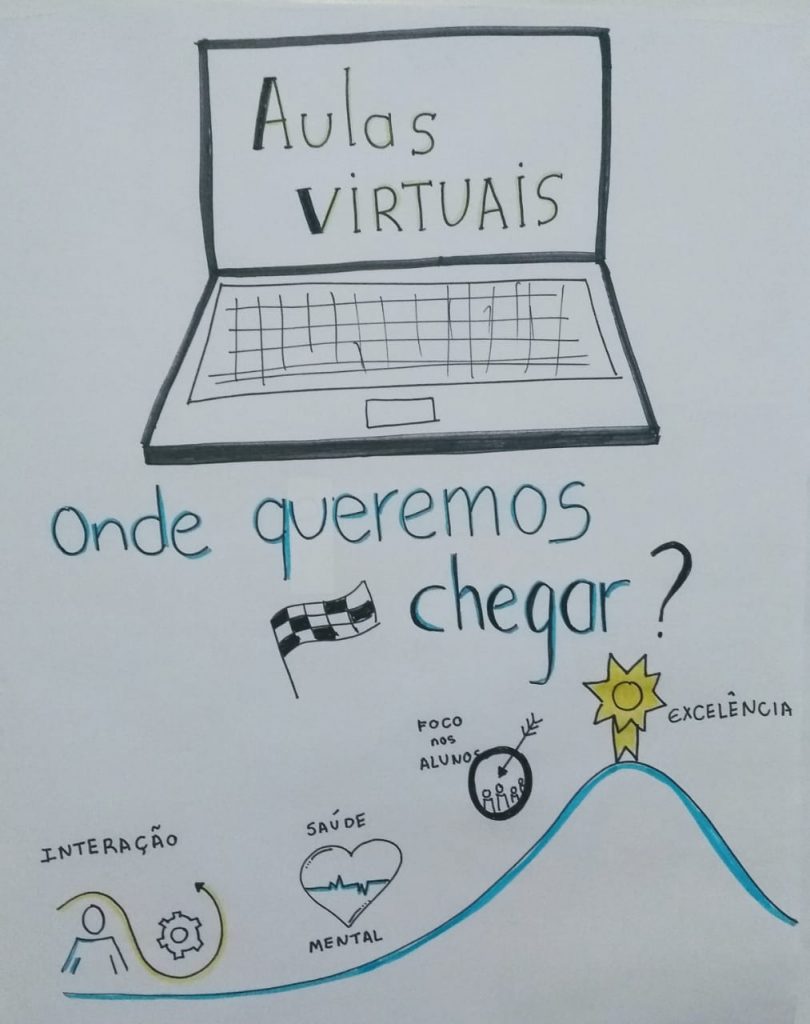 Aulas
VIRTUAIS
Onde queremos
chegar?
EXCELÊNCIA
FOCO
nos
ALUNOS
SAÚDE
MENTAL
INTERAÇÃO